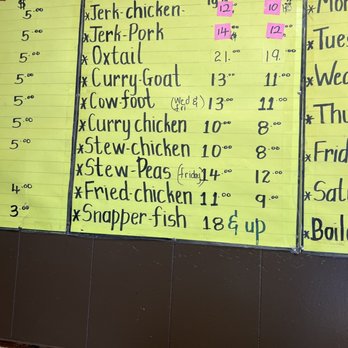 $
5.00 *Jerk-chicken- 12.00 10.00 *Mon
5.00 *Jerk-Pork 14.00 12.00
5.00 *Oxtail 21.00 19.00 *Tues
5.00 *Curry-Goat 13.00 11.00 *Wed
5.00 *Cow-foot (Wed & fri) 13.00 11.00
5.00 *Curry chicken 10.00 8.00 *Thu
5.00 *Stew-chicken 10.00 8.00 *Frid
*Stew-Peas (friday) 14.00 12.00
4.00 *Fried-chicken 11.00 9.00 *Sat
3.00 *Snapper-fish 18 & up *Boile